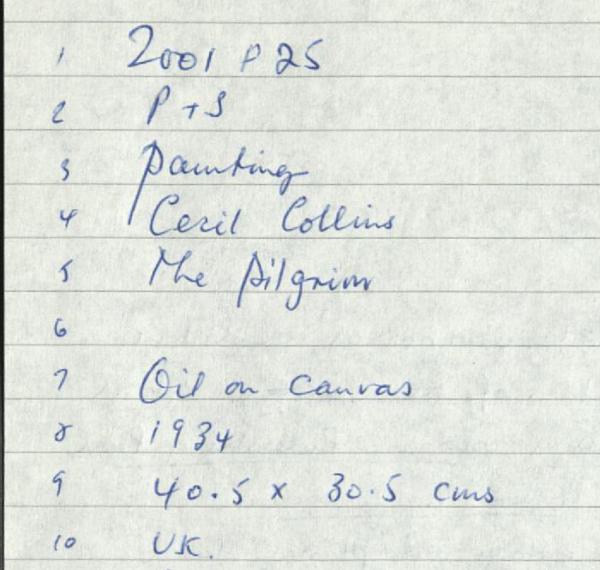 1 2001 P 25
2 P + S
3 Painting
4 Cecil Collins
5 The Pilgrim
6
7 Oil on canvas
8 1934
9 40.5 x 30.5 cms
10 UK.